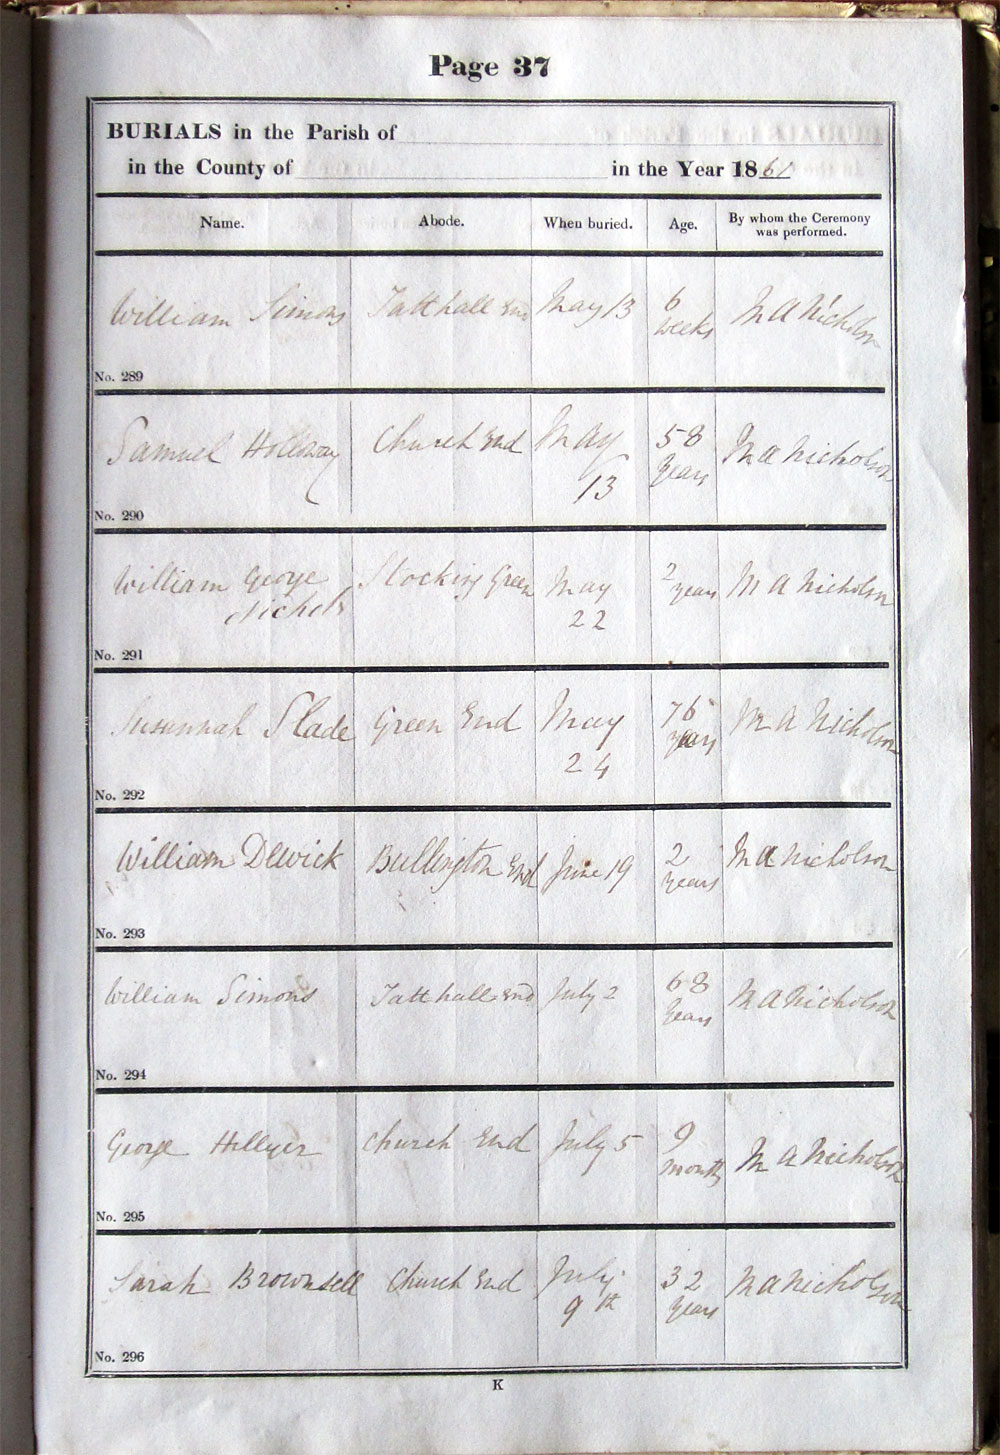 Page 37
BURIALS in the Parish of
in the County of in the Year 1861
Name. Abode. When buried. Age. By whom the Ceremony was performed.
William Simons Tatthall End May 13 6 weeks M A Nicholson
No. 289
Samuel Holloway Church End May 13 58 Years M A Nicholson
No. 290
William George Nichols Stocking Green May 22 2 years M A Nicholson
No. 291
Susannah Slade Green End May 24 76 years M A Nicholson
No. 292
William Dewick Bullington End June 19 2 years M A Nicholson
No. 293
William Simons Tatthall End July 2 68 Years M A Nicholson
No. 294
George Hillyer Church End July 5 9 months M A Nicholson
No. 295
Sarah Brownsell Church End July 9th 32 Years M A Nicholson
No. 296
K